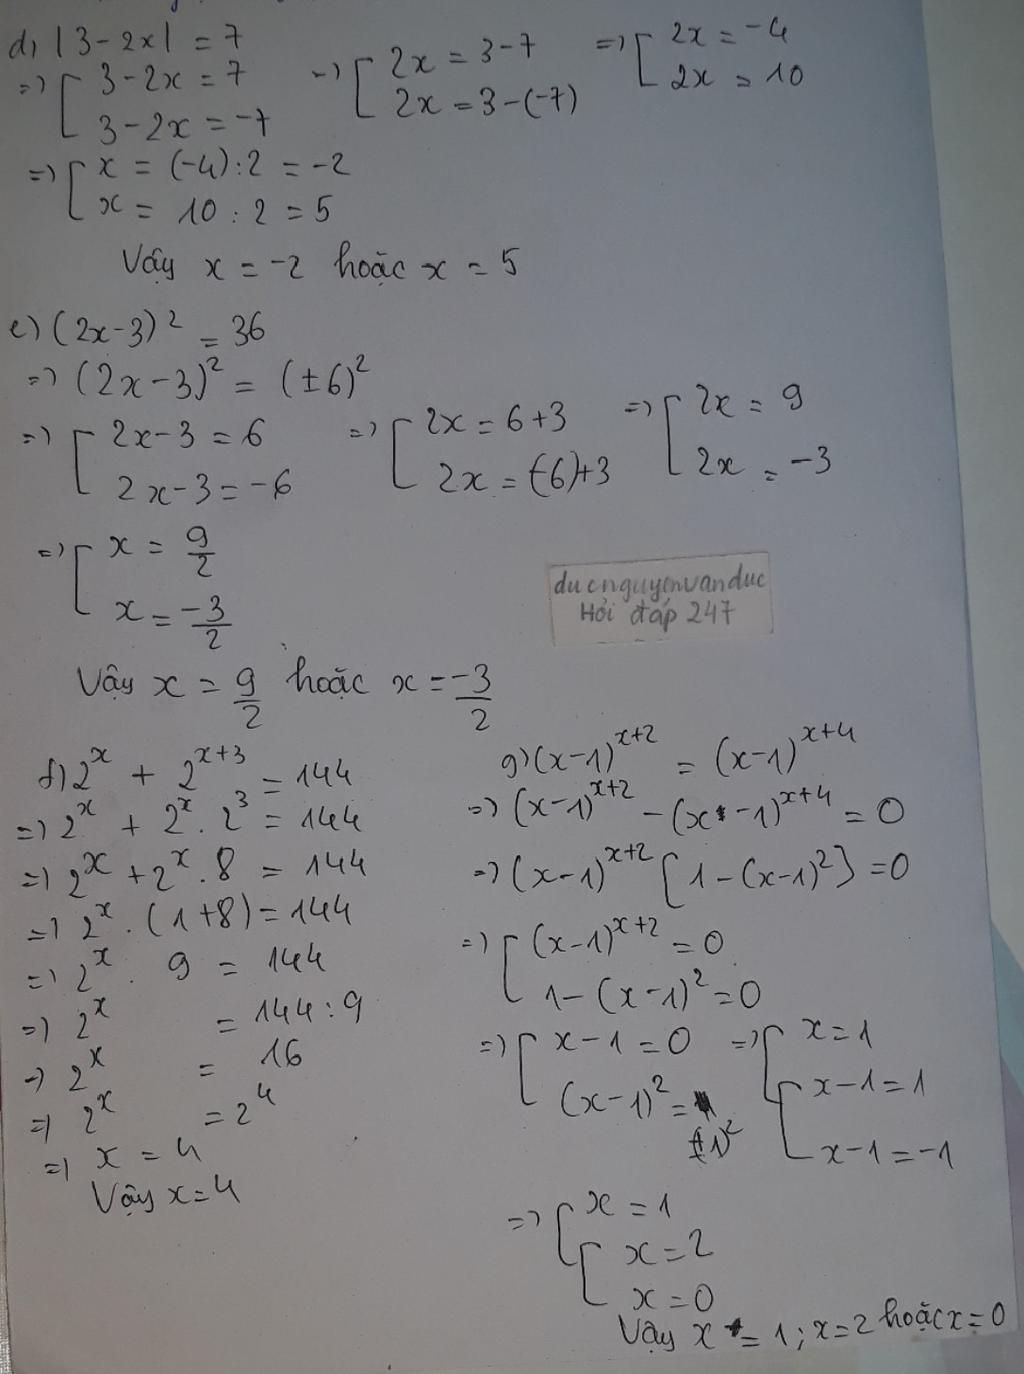 d, |3-2x| = 7
=> [ 3-2x = 7 => [ 2x = 3-7 => [ 2x = -4
3-2x = -7 2x = 3-(-7) 2x = 10
=> [ x = (-4):2 = -2
x = 10 : 2 = 5
Vậy x = -2 hoặc x = 5
e) (2x-3)² = 36
=> (2x-3)² = (±6)²
=> [ 2x-3 = 6 => [ 2x = 6+3 => [ 2x = 9
2x-3 = -6 2x = (-6)+3 2x = -3
=> [ x = 9/2
x = -3/2
ducnguyenvanduc
Hỏi đáp 247
Vậy x = 9/2 hoặc x = -3/2
f) 2^x + 2^(x+3) = 144
=> 2^x + 2^x . 2³ = 144
=> 2^x + 2^x . 8 = 144
=> 2^x . (1+8) = 144
=> 2^x . 9 = 144
=> 2^x = 144 : 9
=> 2^x = 16
=> 2^x = 2⁴
=> x = 4
Vậy x = 4
g) (x-1)^(x+2) = (x-1)^(x+4)
=> (x-1)^(x+2) - (x-1)^(x+4) = 0
=> (x-1)^(x+2) [1-(x-1)²] = 0
=> [ (x-1)^(x+2) = 0
1-(x-1)² = 0
=> [ x-1 = 0 => [ x = 1
(x-1)² = (±1)² [ x-1 = 1
x-1 = -1
=> [ x = 1
[ x = 2
x = 0
Vậy x = 1 ; x = 2 hoặc x = 0